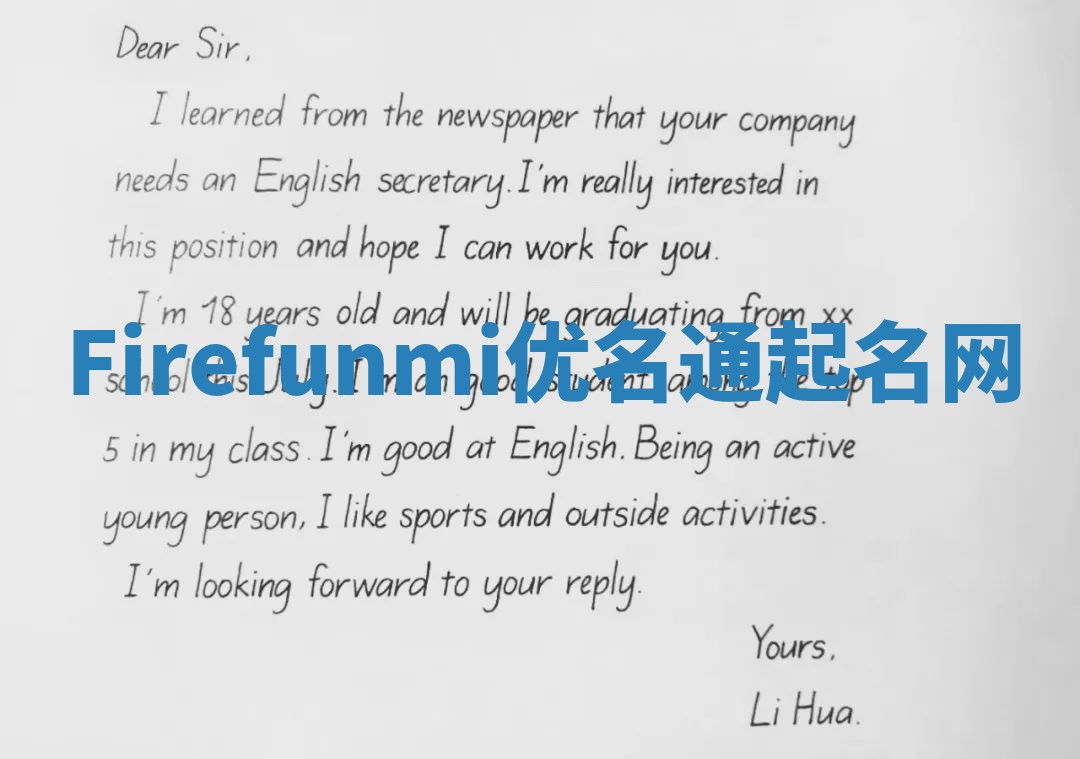 Dear Sir,
I learned from the newspaper that your company
needs an English secretary. I'm really interested in
this position and hope I can work for you.
I'm 18 years old and will be graduating from xx
Firefunmi优名通起名网
school this July. I'm an good student among the top
5 in my class. I'm good at English. Being an active
young person, I like sports and outside activities.
I'm looking forward to your reply.
Yours,
Li Hua.